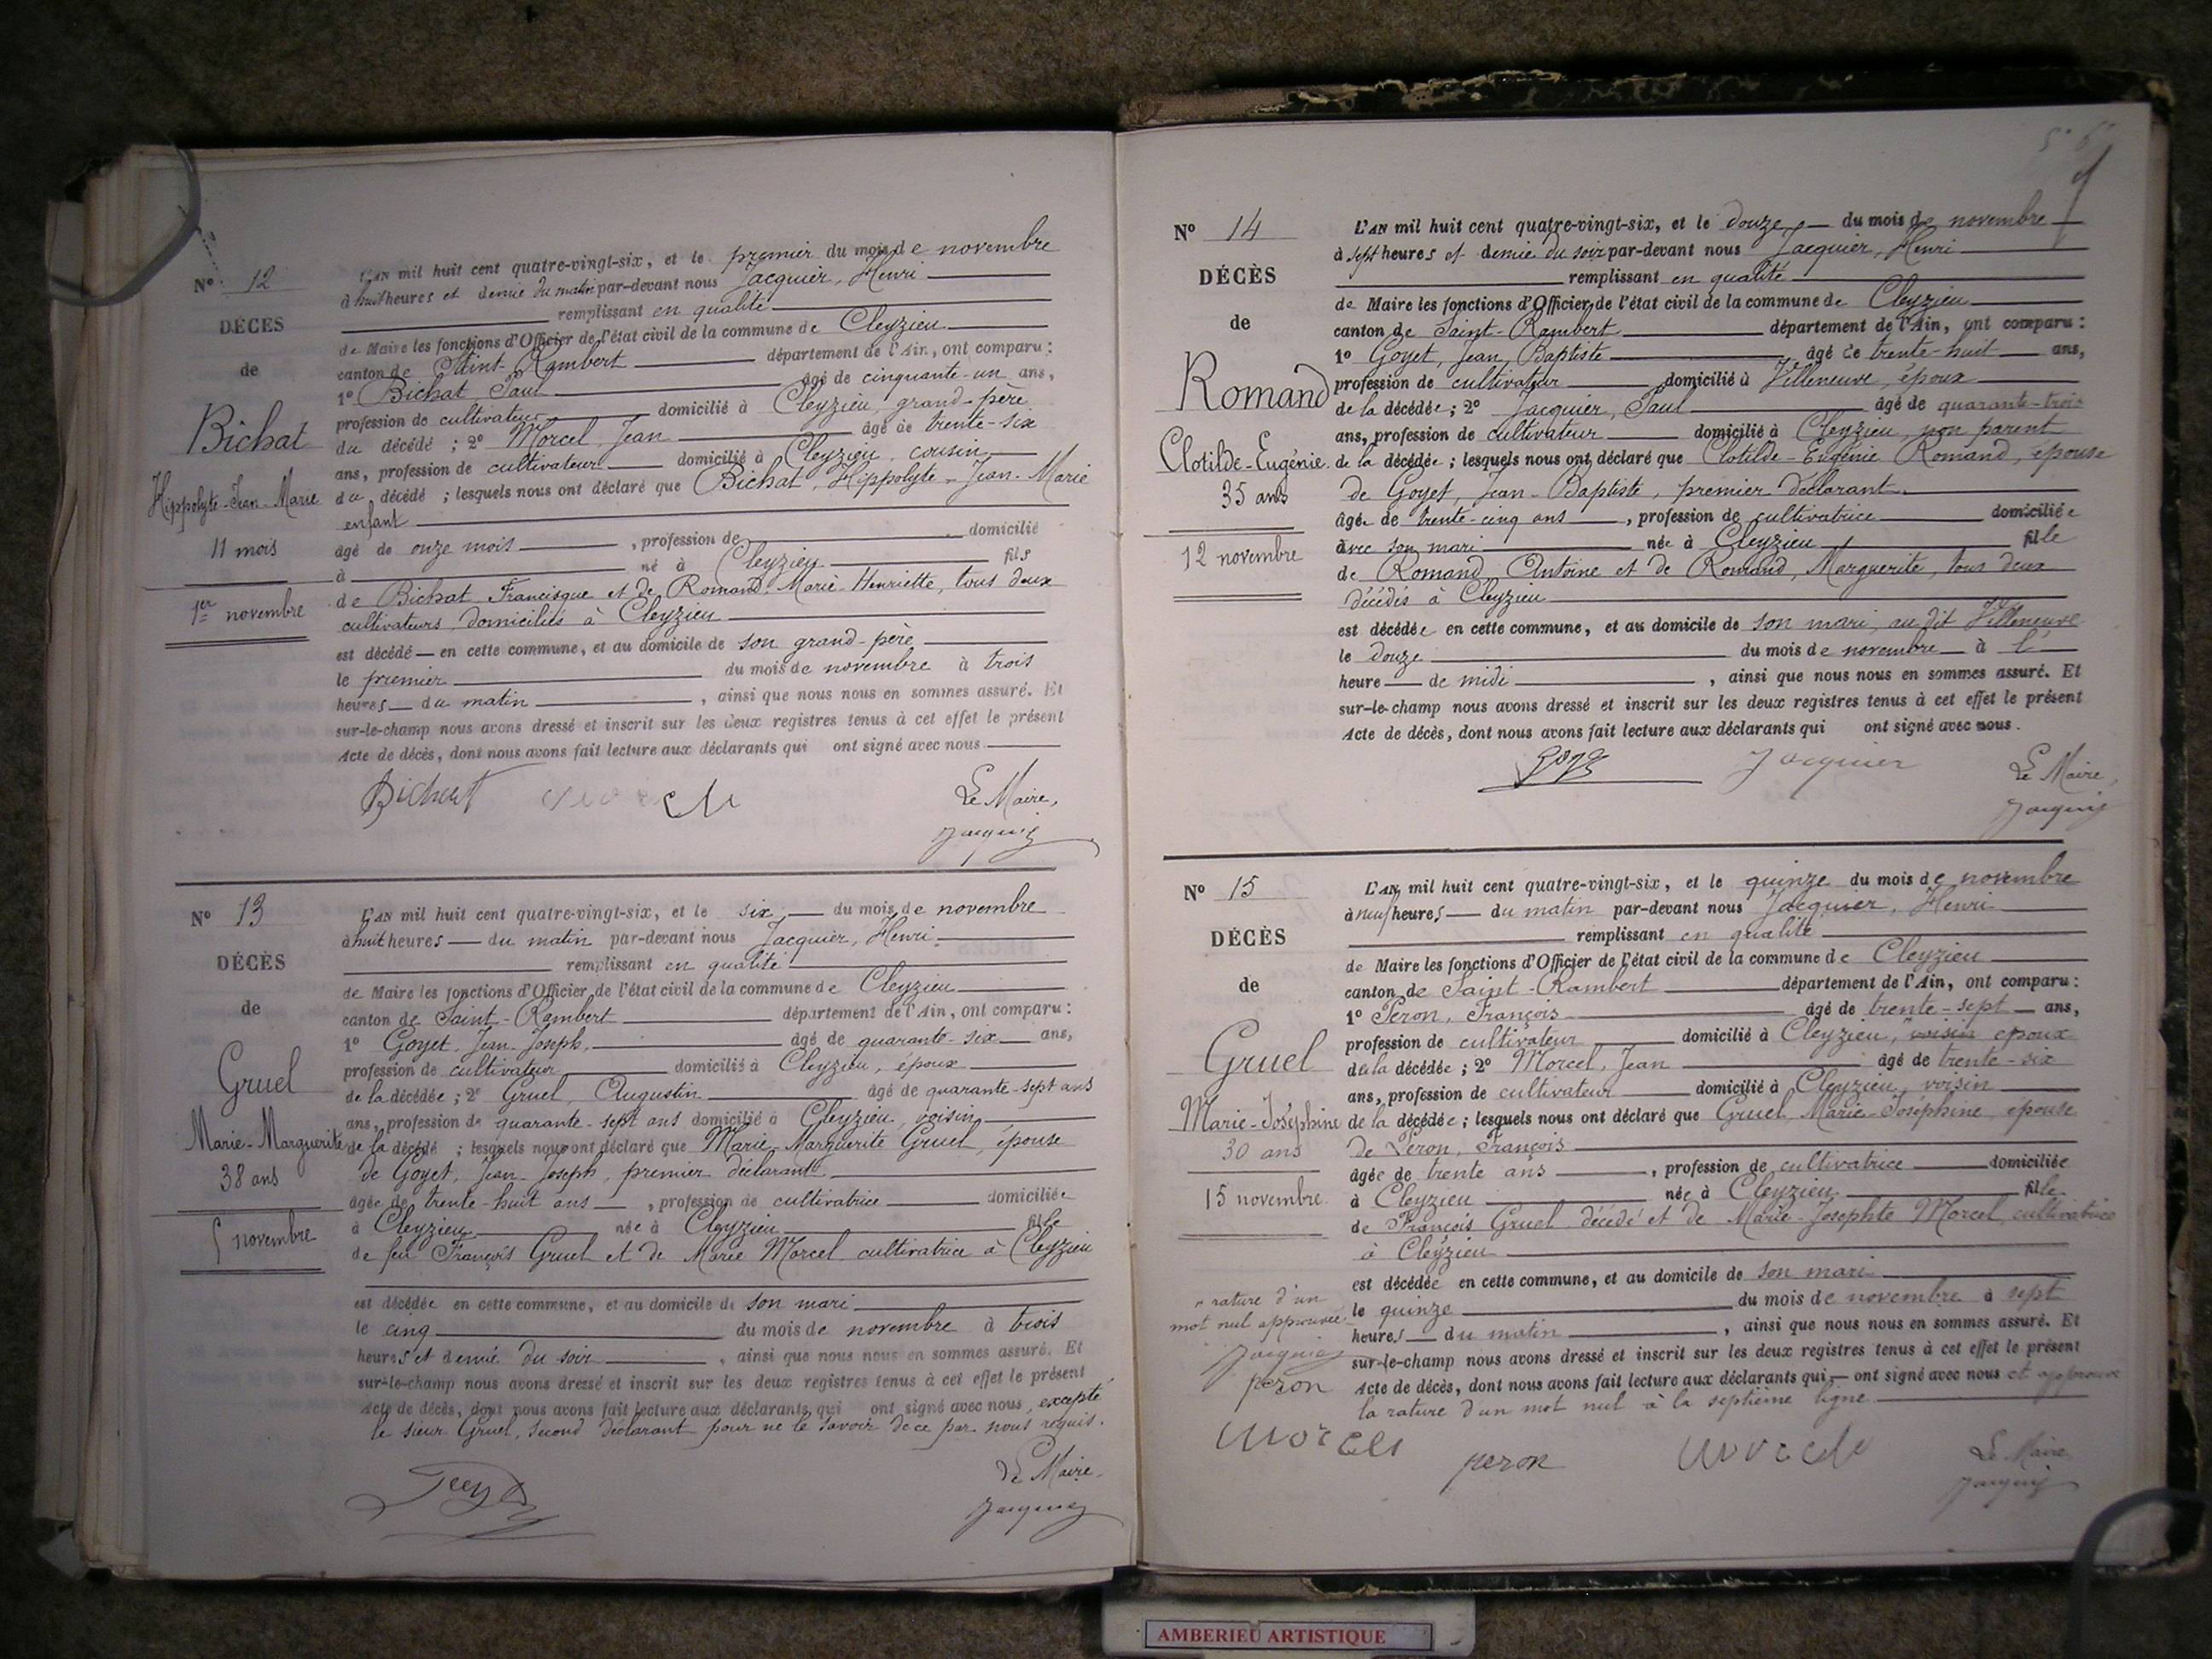 N° 12
DÉCÈS
de
Bichat
Hippolyte-Jean-Marie
11 mois
1er novembre
L'AN mil huit cent quatre-vingt-six, et le premier du mois de novembre
à huit heures et demie du matin par-devant nous Jacquier, Henri
remplissant en qualité
de Maire les fonctions d'Officier de l'état civil de la commune de Cleyzieu
canton de Saint-Rambert département de l'Ain, ont comparu :
1° Bichat, Paul âgé de cinquante-un ans,
profession de cultivateur domicilié à Cleyzieu, grand-père
du décédé ; 2° Morcel, Jean âgé de trente-six
ans, profession de cultivateur domicilié à Cleyzieu, cousin
du décédé ; lesquels nous ont déclaré que Bichat, Hippolyte-Jean-Marie
enfant
âgé de onze mois , profession de domicilié
à né à Cleyzieu fils
de Bichat Francisque et de Romand, Marie-Henriette, tous deux
cultivateurs domiciliés à Cleyzieu
est décédé en cette commune, et au domicile de son grand-père
le premier du mois de novembre à trois
heures du matin , ainsi que nous nous en sommes assuré. Et
sur-le-champ nous avons dressé et inscrit sur les deux registres tenus à cet effet le présent
Acte de décès, dont nous avons fait lecture aux déclarants qui ont signé avec nous.
Bichat
Le Maire,
Jacquier
N° 13
DÉCÈS
de
Gruel
Marie-Marguerite
38 ans
5 novembre
L'AN mil huit cent quatre-vingt-six, et le six du mois de novembre
à huit heures du matin par-devant nous Jacquier, Henri
remplissant en qualité
de Maire les fonctions d'Officier de l'état civil de la commune de Cleyzieu
canton de Saint-Rambert département de l'Ain, ont comparu :
1° Goyet, Jean-Joseph, âgé de quarante-six ans,
profession de cultivateur domicilié à Cleyzieu, époux
de la décédée ; 2° Gruel, Augustin âgé de quarante-sept ans
ans, profession de quarante-sept ans domicilié à Cleyzieu, voisin
de la décédé ; lesquels nous ont déclaré que Marie-Marguerite Gruel, épouse
de Goyet, Jean-Joseph, premier déclarant
âgée de trente-huit ans , profession de cultivatrice domiciliée
à Cleyzieu née à Cleyzieu fille
de feu François Gruel et de Marie Morcel cultivatrice à Cleyzieu
est décédée en cette commune, et au domicile de son mari
le cinq du mois de novembre à trois
heures et demie du soir , ainsi que nous nous en sommes assuré. Et
sur-le-champ nous avons dressé et inscrit sur les deux registres tenus à cet effet le présent
Acte de décès, dont nous avons fait lecture aux déclarants qui ont signé avec nous, excepté
le sieur Gruel, second déclarant pour ne le savoir de ce par nous requis.
Le Maire
Jacquier
N° 14
DÉCÈS
de
Romand
Clotilde-Eugénie
35 ans
12 novembre
L'AN mil huit cent quatre-vingt-six, et le douze du mois de novembre
à sept heures et demie du soir par-devant nous Jacquier, Henri
remplissant en qualité
de Maire les fonctions d'Officier de l'état civil de la commune de Cleyzieu
canton de Saint-Rambert département de l'Ain, ont comparu :
1° Goyet, Jean, Baptiste âgé de trente-huit ans,
profession de cultivateur domicilié à Villeneuve, époux
de la décédée ; 2° Jacquier, Paul âgé de quarante-trois
ans, profession de cultivateur domicilié à Cleyzieu, non parent
de la décédée ; lesquels nous ont déclaré que Clotilde-Eugénie Romand, épouse
de Goyet, Jean-Baptiste, premier déclarant
âgée de trente-cinq ans , profession de cultivatrice domiciliée
avec son mari née à Cleyzieu fille
de Romand, Antoine et de Romand, Marguerite, tous deux
décédés à Cleyzieu
est décédée en cette commune, et au domicile de son mari, au dit Villeneuve
le douze du mois de novembre à l'
heure de midi , ainsi que nous nous en sommes assuré. Et
sur-le-champ nous avons dressé et inscrit sur les deux registres tenus à cet effet le présent
Acte de décès, dont nous avons fait lecture aux déclarants qui ont signé avec nous.
Jacquier
Le Maire,
Jacquier
N° 15
DÉCÈS
de
Gruel
Marie-Joséphine
30 ans
15 novembre
rature d'un
mot nul approuvée
Jacquier
peron
L'AN mil huit cent quatre-vingt-six, et le quinze du mois de novembre
à neuf heures du matin par-devant nous Jacquier, Henri
remplissant en qualité
de Maire les fonctions d'Officier de l'état civil de la commune de Cleyzieu
canton de Saint-Rambert département de l'Ain, ont comparu :
1° Peron, François âgé de trente-sept ans,
profession de cultivateur domicilié à Cleyzieu, voisin epoux
de la décédée ; 2° Morcel, Jean âgé de trente-six
ans, profession de cultivateur domicilié à Cleyzieu, voisin
de la décédée ; lesquels nous ont déclaré que Gruel, Marie-Joséphine, épouse
de Peron, François
âgée de trente ans , profession de cultivatrice domiciliée
à Cleyzieu née à Cleyzieu fille
de François Gruel décédé et de Marie-Josephte Morcel, cultivatrice
à Cleyzieu
est décédée en cette commune, et au domicile de son mari
le quinze du mois de novembre à sept
heures du matin , ainsi que nous nous en sommes assuré. Et
sur-le-champ nous avons dressé et inscrit sur les deux registres tenus à cet effet le présent
Acte de décès, dont nous avons fait lecture aux déclarants qui ont signé avec nous et approuvé
la rature d'un mot nul à la septième ligne
morcel
peron
morcel
Le Maire
Jacquier
AMBERIEU ARTISTIQUE